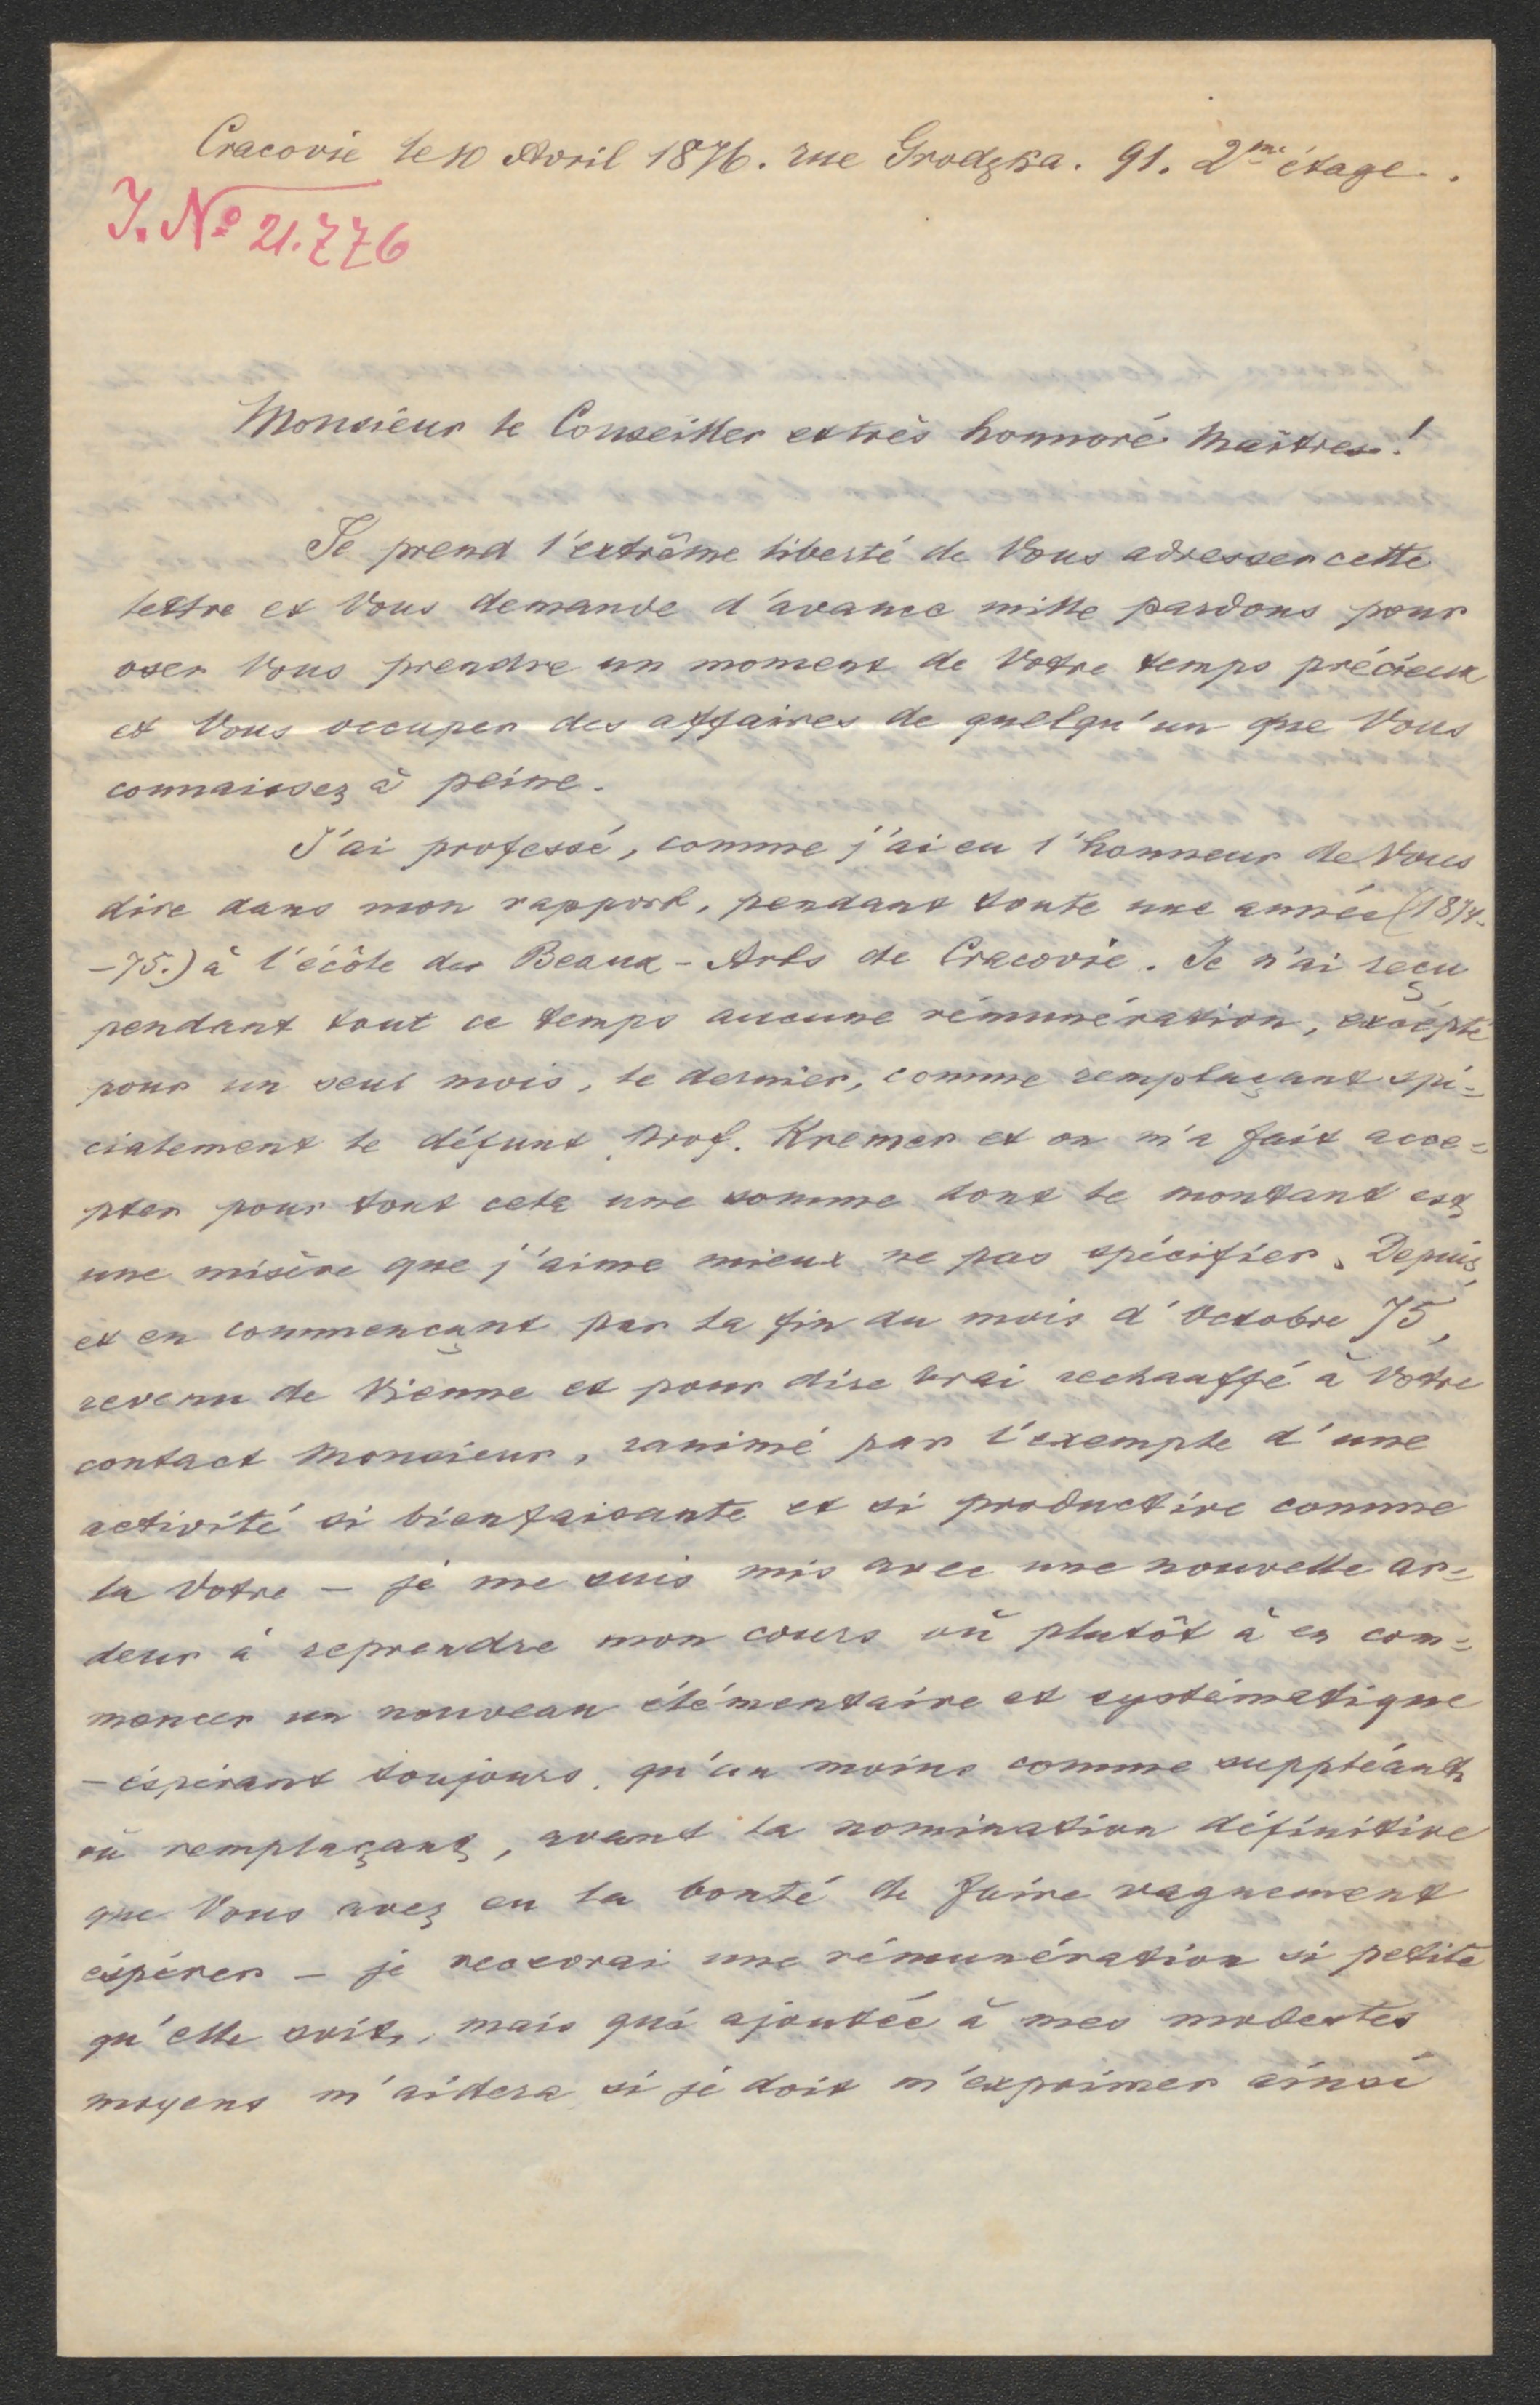 Cracovie le 10 Avril 1876. rue Grodzka. 91. 2me étage.
J. No 21.776
Monsieur le Conseiller et très honnoré Maître!
Je prend l'extrême liberté de Vous adresser cette
lettre et Vous demande d'avance mille pardons pour
oser Vous prendre un moment de Votre temps précieux
et Vous occuper des affaires de quelqu'un que Vous
connaissez à peine.
J'ai professé, comme j'ai eu l'honneur de Vous
dire dans mon rapport, pendant toute une année (1874-
-75.) à l'écôle des Beaux-Arts de Cracovie. Je n'ai reçu
pendant tout ce temps aucune rémunération, excépté
pour un seul mois, le dernier, comme remplaçant spé=
cialement le défunt Prof. Kremer et on m'a fait acce=
pter pour tout cela une somme dont le montant est
une misère que j'aime mieux ne pas spécifier. Depuis,
et en commençant par la fin du mois d'Octobre 75,
revenu de Vienne et pour dire vrai rechauffé à Votre
contact Monsieur, ranimé par l'exemple d'une
activité si bienfaisante et si productive comme
la Votre – je me suis mis avec une nouvelle ar=
deur à reprendre mon cours où plutôt à en com=
mencer un nouveau élémentaire et systématique
– éspérant toujours, qu'au moins comme suppléant
où remplaçant, avant la nomination définitive
que Vous avez eu la bonté de faire vaguement
éspérer – je recevrai une rémunération si petite
qu'elle soit, mais qui ajoutée à mes modestes
moyens m'aidera, si je dois m'exprimer ainsi